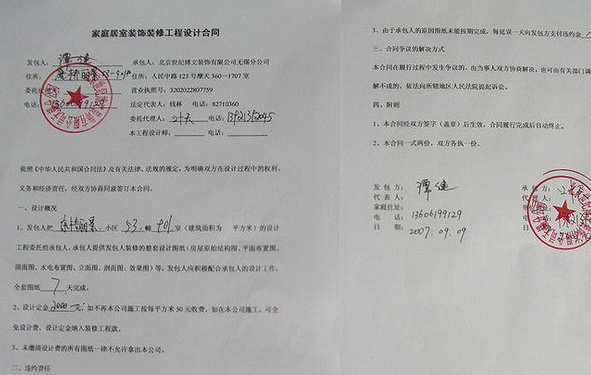 家庭居室装饰装修工程设计合同
发包人： 谭健 承包人：北京世纪博文装饰有限公司无锡分公司
住所： 承包人：人民中路 123 号摩天 360－1707 室
委托代 营业执照号：3202022807759
电话：13606199129 法定代表人：钱林 电话：82710360
委托代理人： 电话：13921392045
本工程设计师： 电话：
依照《中华人民共和国合同法》及有关法律、法规的规定，为明确双方在设计过程中的权利、
义务和经济责任，经双方协商同意签订本合同。
一、设计概况
1、发包人把 小区 53 幢 901 室（建筑面积为 平方米）的设计
工程委托给承包人，承包人提供发包人装修的整套设计图纸（房屋原始结构图、平面布置图、
顶面图、水电布置图、立面图、剖面图、效果图）等。发包人应积极配合承包人的设计工作，
全套图纸 7 天完成。
2、设计定金 2000 元；如不再本公司施工按每平方米 50 元收费，如在本公司施工，可全
免设计费，设计定金纳入装修工程款。
3、未缴清设计费的所有图纸一律不允许拿出本公司。
二、违约责任
3、由于承包人的原因图纸未能按期完成，每延误一天向发包方支付违约金
三、合同争议的解决方式
本合同在履行过程中发生争议的，由当事人双方协商解决，也可由有关部门调
解不成的，依法向所辖地区人民法院提起诉讼。
四、附则
1、本合同经双方签字（盖章）后生效，合同履行完成后自动终止。
2、本合同一式两份，双方各执一份。
发 包 方： 谭健 承 包 方：
代 表 人：
家庭住址：
电 话： 13606199129
日 期： 2007.09.09